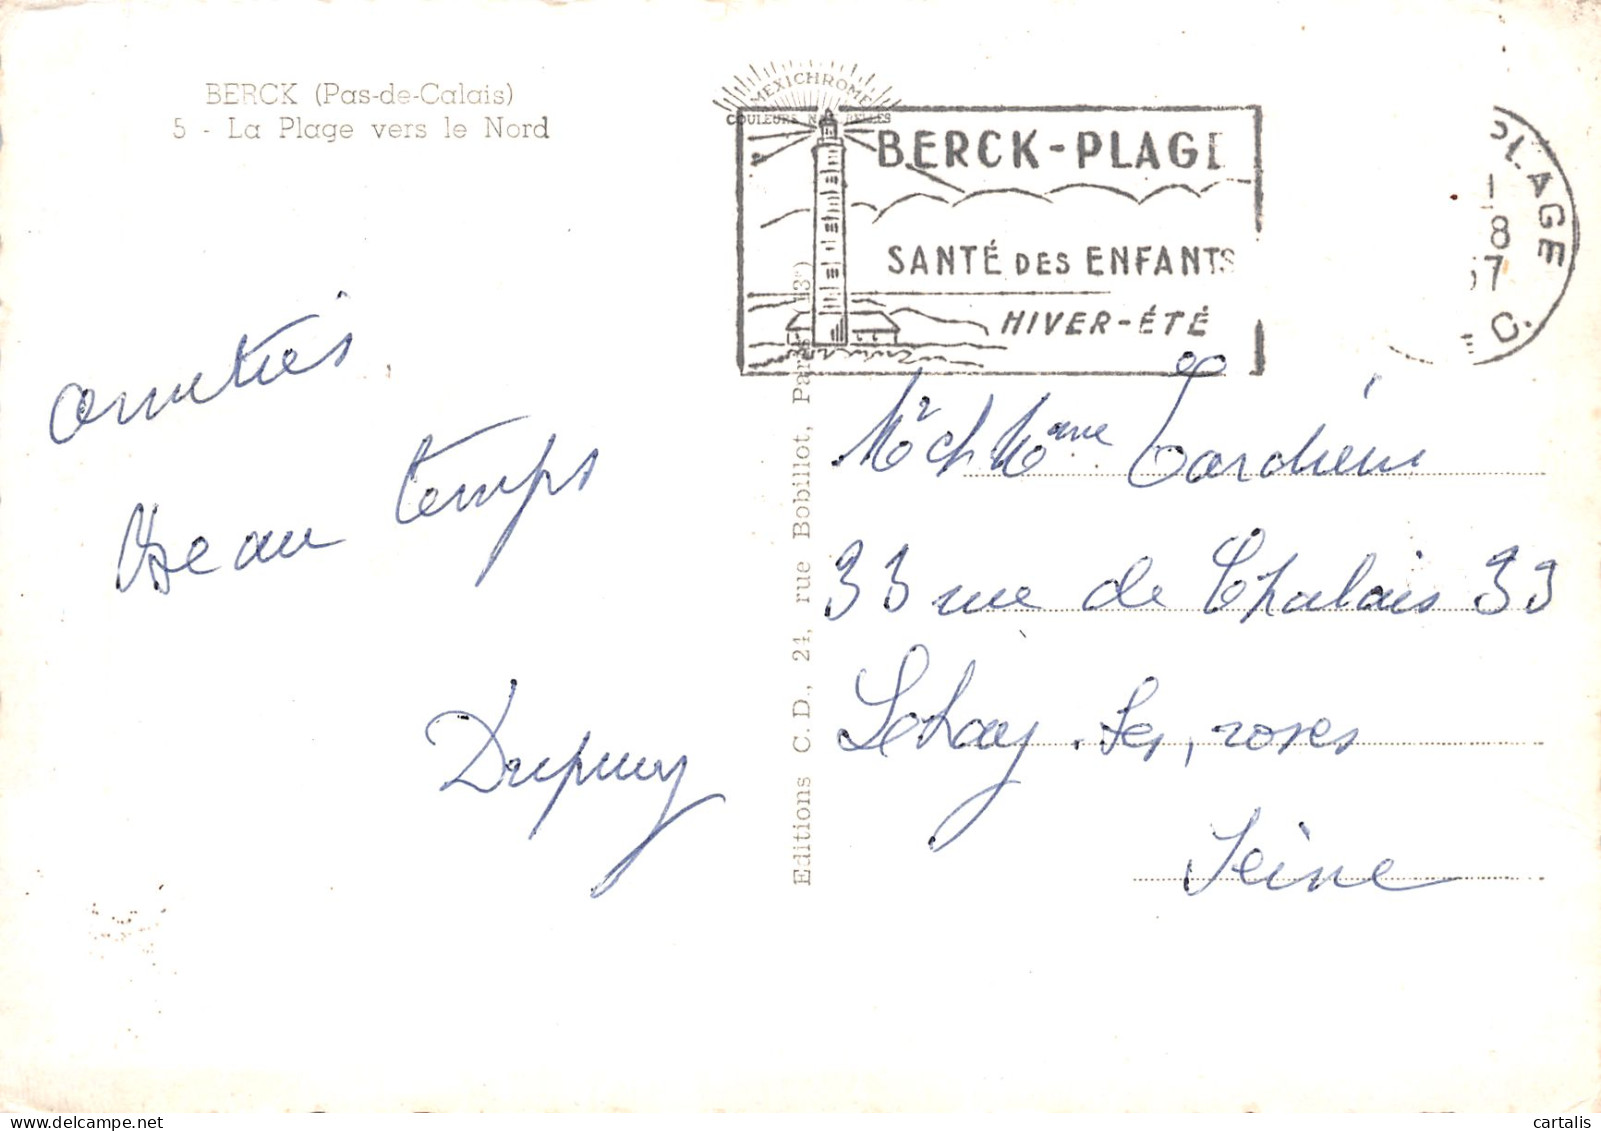 BERCK (Pas-de-Calais)
5 - La Plage vers le Nord
MEXICHROME
COULEURS NATURELLES
BERCK-PLAGE
SANTÉ DES ENFANTS
HIVER-ÉTÉ
PLAGE
8
57
amitiés
Beau temps
Dupuy
Editions C. D., 24, rue Bobillot, Paris (13e)
Mr et Mme Tardieu
33 rue de Chalais 33
Lehay-les-roses
Seine
cartalis
delcampe.net